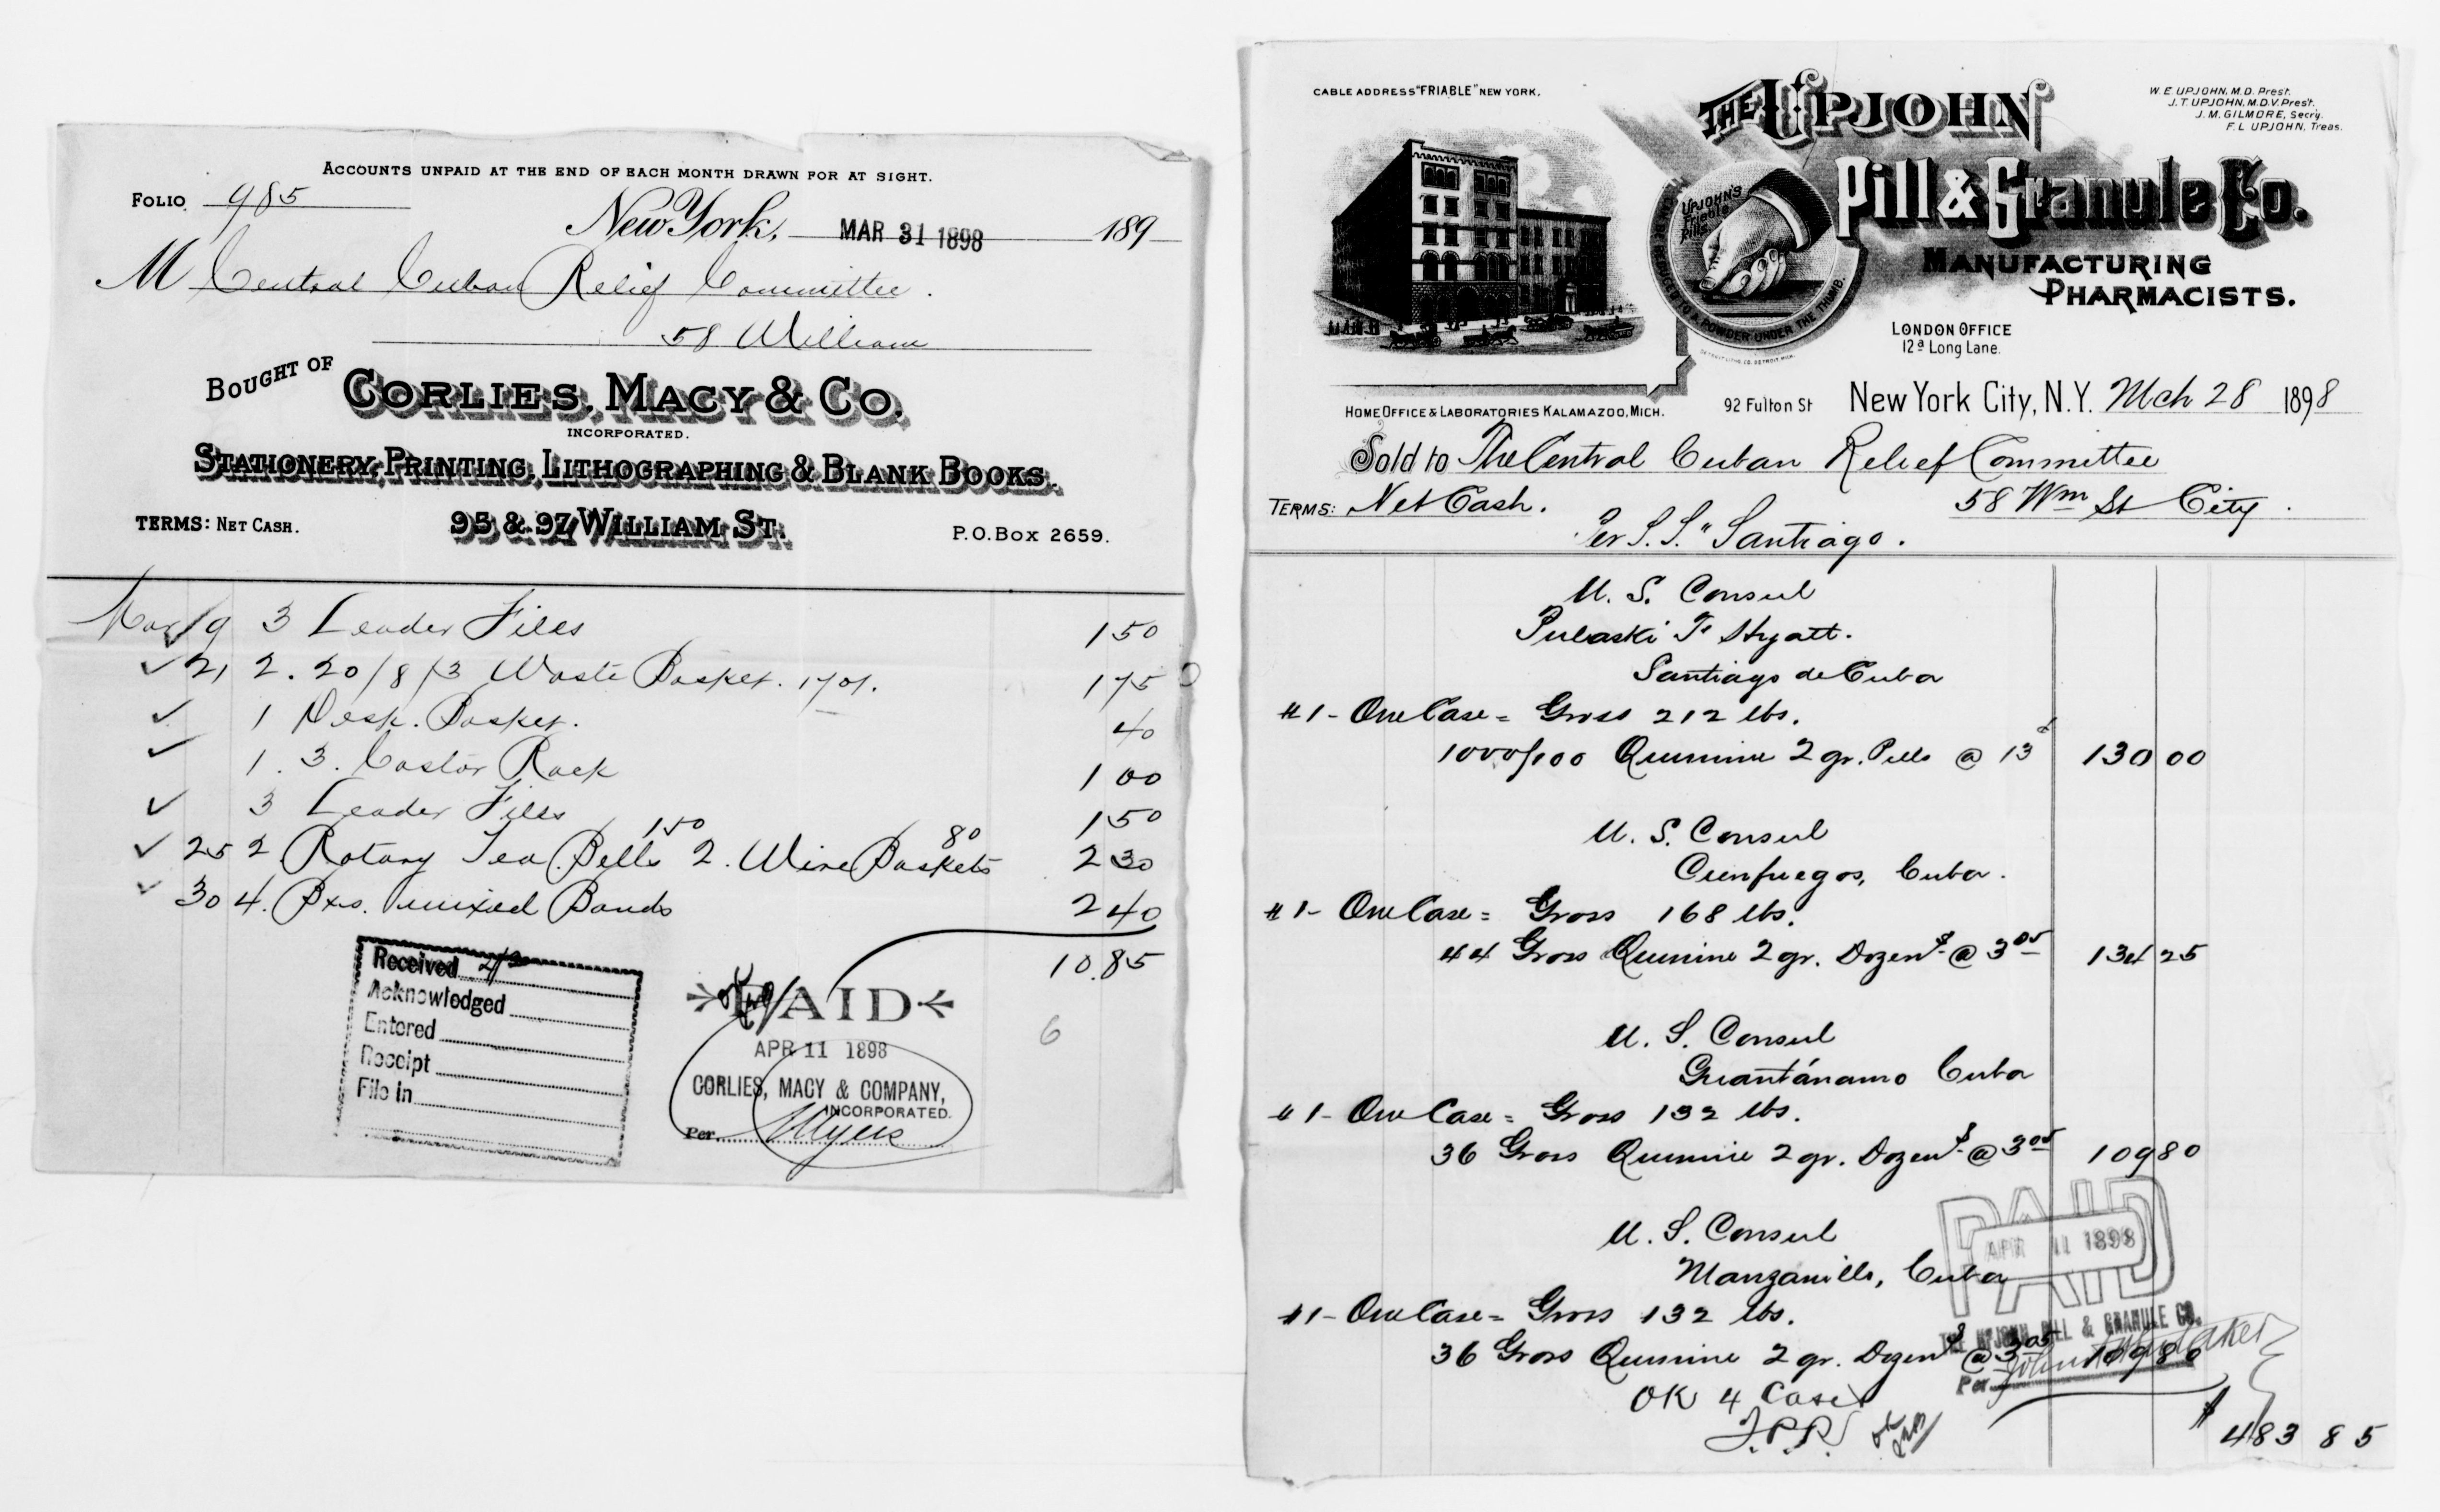 ACCOUNTS UNPAID AT THE END OF EACH MONTH DRAWN FOR AT SIGHT.
FOLIO 985
New York, MAR 31 1898 189
M Central Cuban Relief Committee.
58 William
BOUGHT OF CORLIES, MACY & CO.
INCORPORATED.
STATIONERY, PRINTING, LITHOGRAPHING & BLANK BOOKS.
TERMS: NET CASH. 95 & 97 WILLIAM ST. P.O. BOX 2659.
Mar 19 3 Leader Files 1 50
21 2. 20/8/3 Waste Basket. 1 75
1 Desk. Basket. 40
1. 3. Castor Rack 1 00
3 Leader Files 1 50
25 2 Rotary Tea Bells 150 2. Wire Baskets 80 2 30
30 4. Bxs. mixed Bands 2 40
10.85
6
Received
Acknowledged
Entered
Receipt
File in
PAID
APR 11 1898
CORLIES, MACY & COMPANY,
INCORPORATED.
Per Myers
CABLE ADDRESS "FRIABLE" NEW YORK.
W. E. UPJOHN, M.D. Prest.
J. T. UPJOHN, M.D. V. Prest.
J. M. GILMORE, Secry.
F. L. UPJOHN, Treas.
THE UPJOHN
Pill & Granule Co.
UPJOHN'S Friable Pills
CAN BE REDUCED TO A POWDER UNDER THE THUMB.
MANUFACTURING
PHARMACISTS.
LONDON OFFICE
12a Long Lane.
HOME OFFICE & LABORATORIES KALAMAZOO, MICH.
92 Fulton St New York City, N.Y. Mch 28 1898
Sold to The Central Cuban Relief Committee
TERMS: Net Cash. 58 Wm St City.
Per S.S. "Santiago.
U. S. Consul
Pulaski F Hyatt.
Santiago de Cuba
#1 - One Case = Gross 212 lbs.
1000/100 Quinine 2 gr. Pills @ 13¢ 130 00
U. S. Consul
Cienfuegos, Cuba.
#1 - One Case = Gross 168 lbs.
44 Gross Quinine 2 gr. Dozens @ $3 05 134 25
U. S. Consul
Guantánamo Cuba
#1 - One Case = Gross 132 lbs.
36 Gross Quinine 2 gr. Dozens @ $3 05 109 80
U. S. Consul
Manzanillo, Cuba
#1 - One Case = Gross 132 lbs.
36 Gross Quinine 2 gr. Dozens @ $3 05 109 80
OK 4 Cases
J.P.R.
$ 483 85
PAID
APR 11 1898
THE UPJOHN PILL & GRANULE CO.
Per